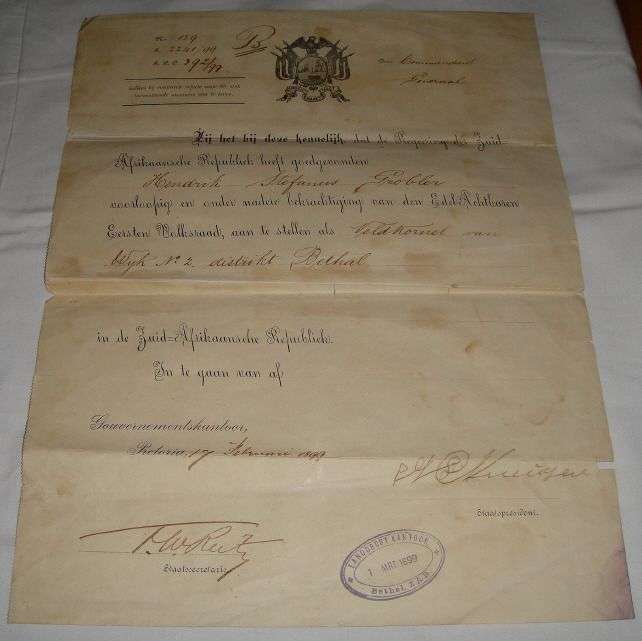 No 139
R 2241/99
B
den Commandant
Generaal
Zij het bij deze kennelijk dat de Regeering der Zuid-
Afrikaansche Republiek heeft goedgevonden
Hendrik Stefanus Grobler
voorloopig en onder nadere bekrachtiging van den Edel-Achtbaren
Eersten Volksraad, aan te stellen als Veldkornet van
Wijk No 2 distrikt Bethal
in de Zuid-Afrikaansche Republiek.
In te gaan van af
Gouvernementskantoor,
Pretoria, 17 Februari 1899
Staatspresident.
F.W. Reitz
Staatssecretaris
LANDDROST KANTOOR
1 MRT 1899
Bethal Z.A.R